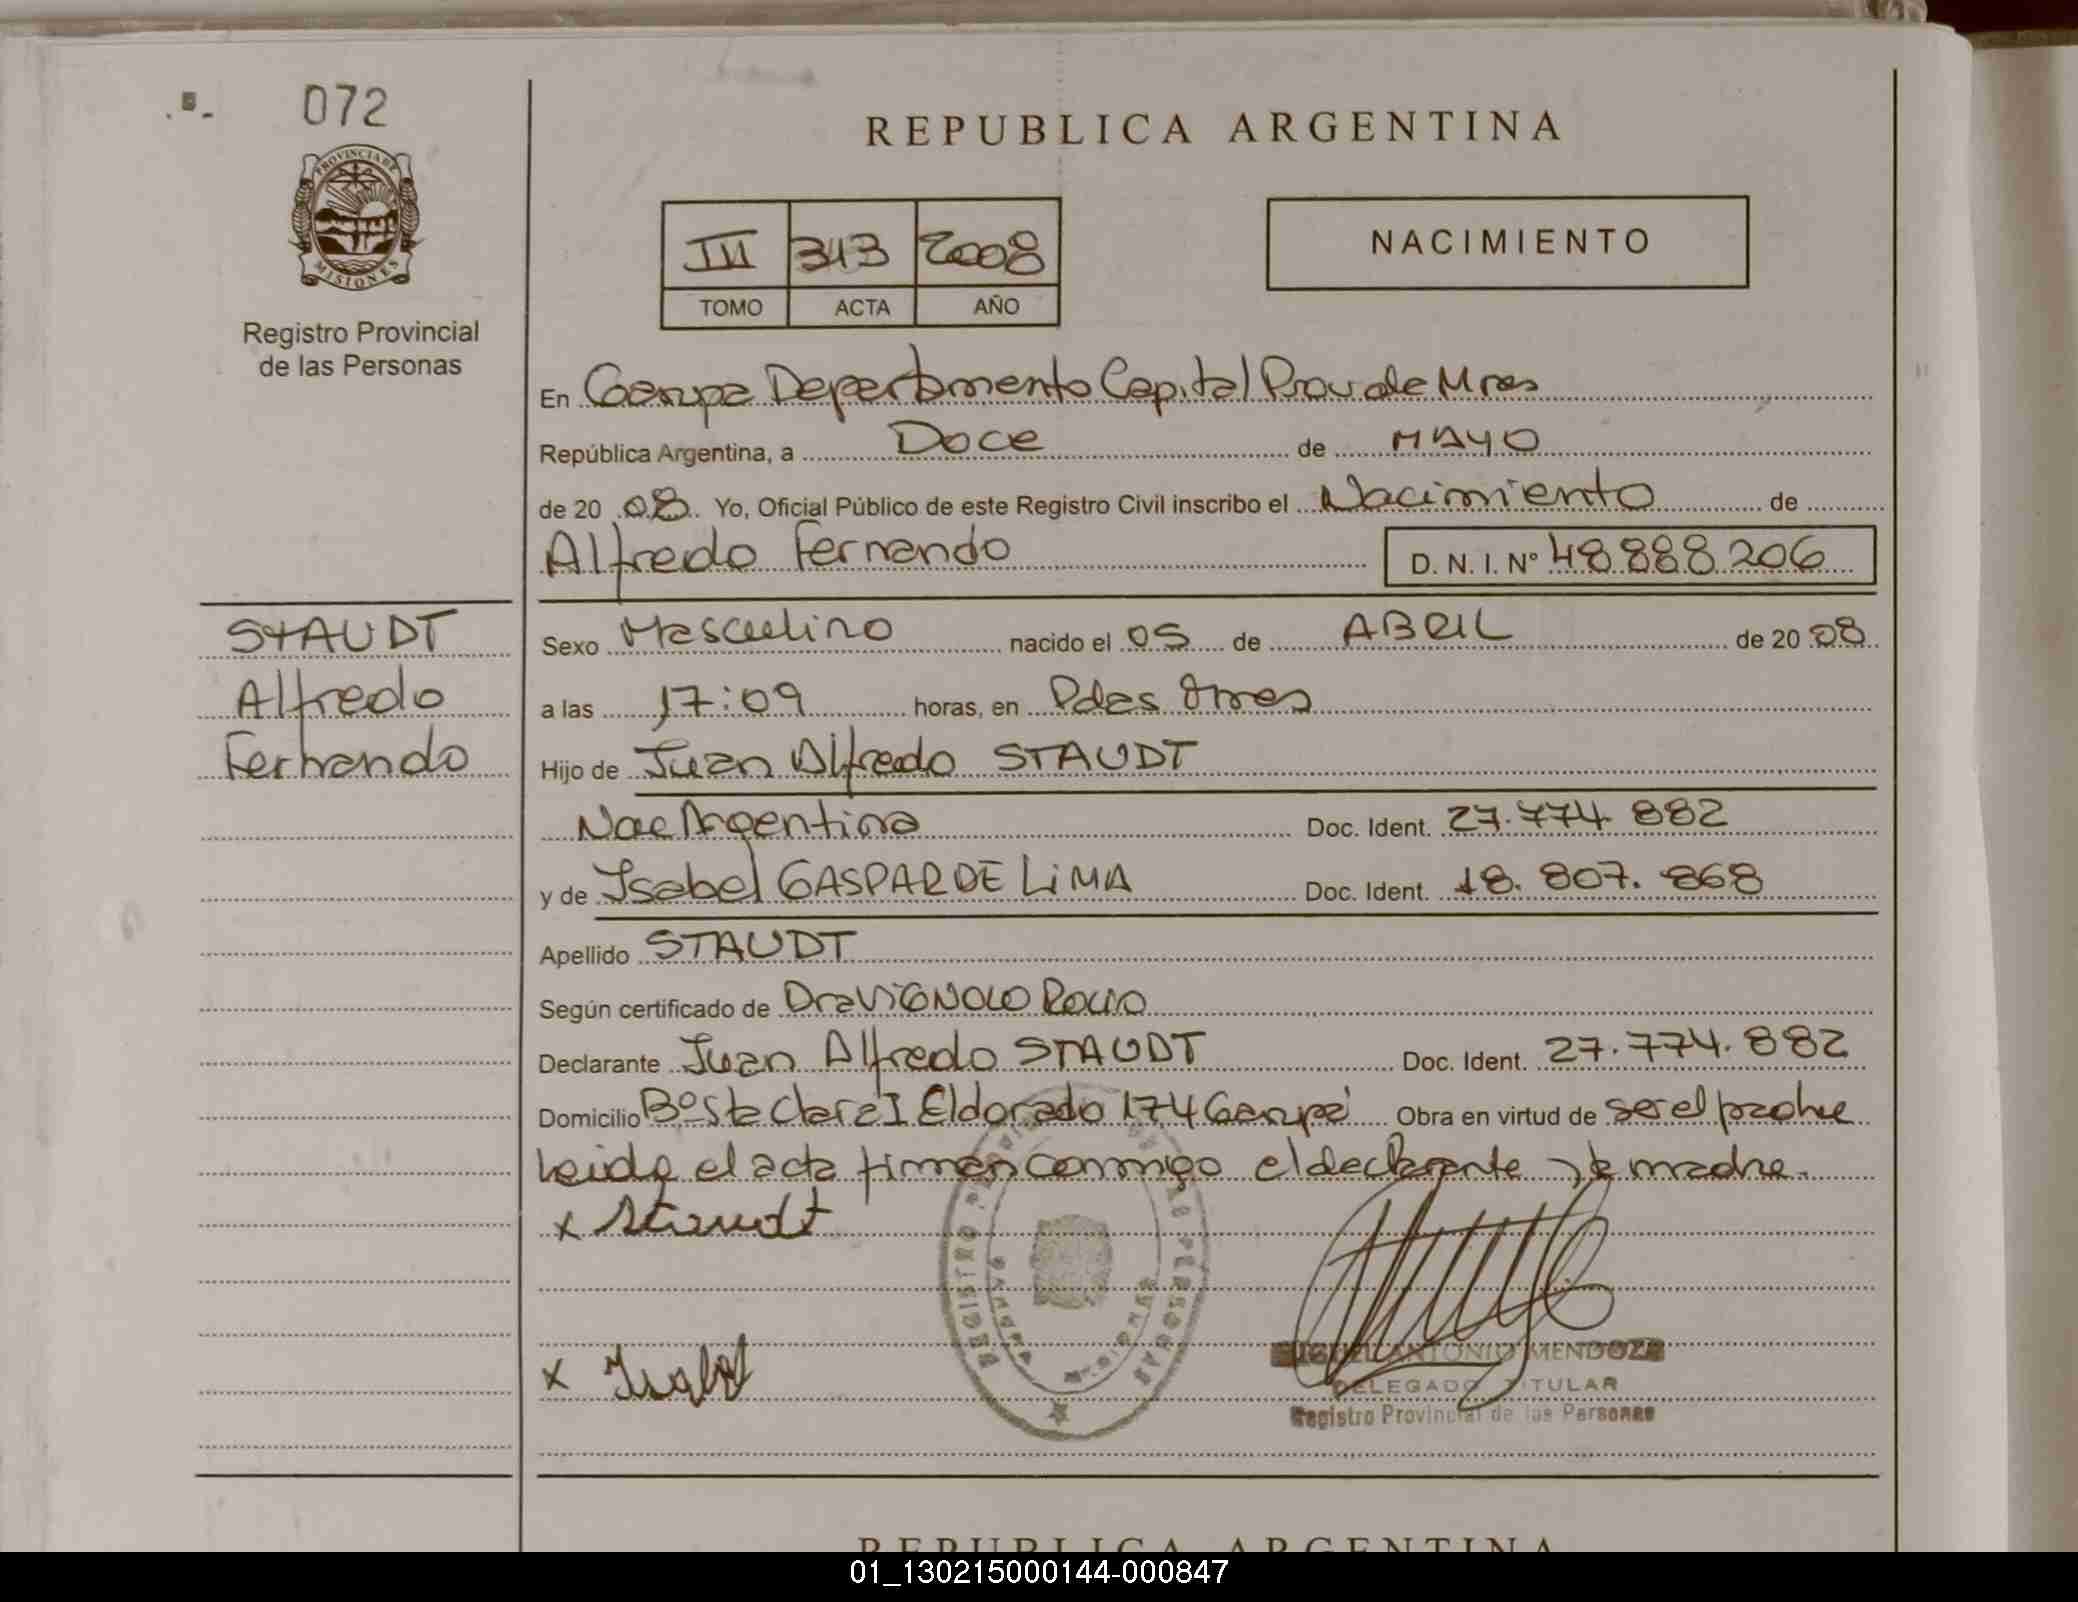 072
PROVINCIA DE
MISIONES
Registro Provincial
de las Personas
REPUBLICA ARGENTINA
III 313 2008
TOMO ACTA AÑO
NACIMIENTO
En Garupa Departamento Capital Prov de Mnes
República Argentina, a Doce de MAYO
de 20 08 Yo, Oficial Público de este Registro Civil inscribo el Nacimiento de
Alfredo Fernando D. N. I. Nº 48.888.206
STAUDT
Alfredo
Fernando
Sexo Masculino nacido el 05 de ABRIL de 20 08
a las 17:09 horas, en Pdas Mnes
Hijo de Juan Alfredo STAUDT
Nac Argentina Doc. Ident. 27.774.882
y de Isabel GASPAR DE LiMA Doc. Ident. 18.807.868
Apellido STAUDT
Según certificado de Dra ViGNOLO Rocio
Declarante Juan Alfredo STAUDT Doc. Ident. 27.774.882
Domicilio Bº Sta Clara I Eldorado 174 Garupá Obra en virtud de ser el padre
Leida el acta firman conmigo el declarante y la madre.
x Staudt
x Isabel
REGISTRO DE LAS PERSONAS
ANTONIO MENDOZA
DELEGADO TITULAR
Registro Provincial de las Personas
REPUBLICA ARGENTINA
01_130215000144-000847